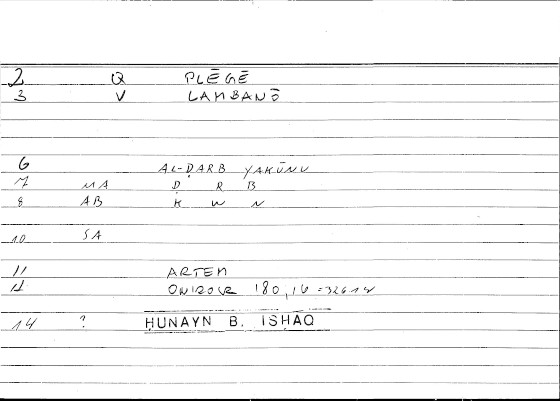 2 Q PLĒGĒ
3 V LAMBANŌ
6 AL-ḌARB YAKŪNU
7 MA Ḍ R B
8 AB K W N
10 SA
11 ARTEM
12 ONIROCR 180,16 =326
14 ? ḤUNAYN B. ISḤAQ